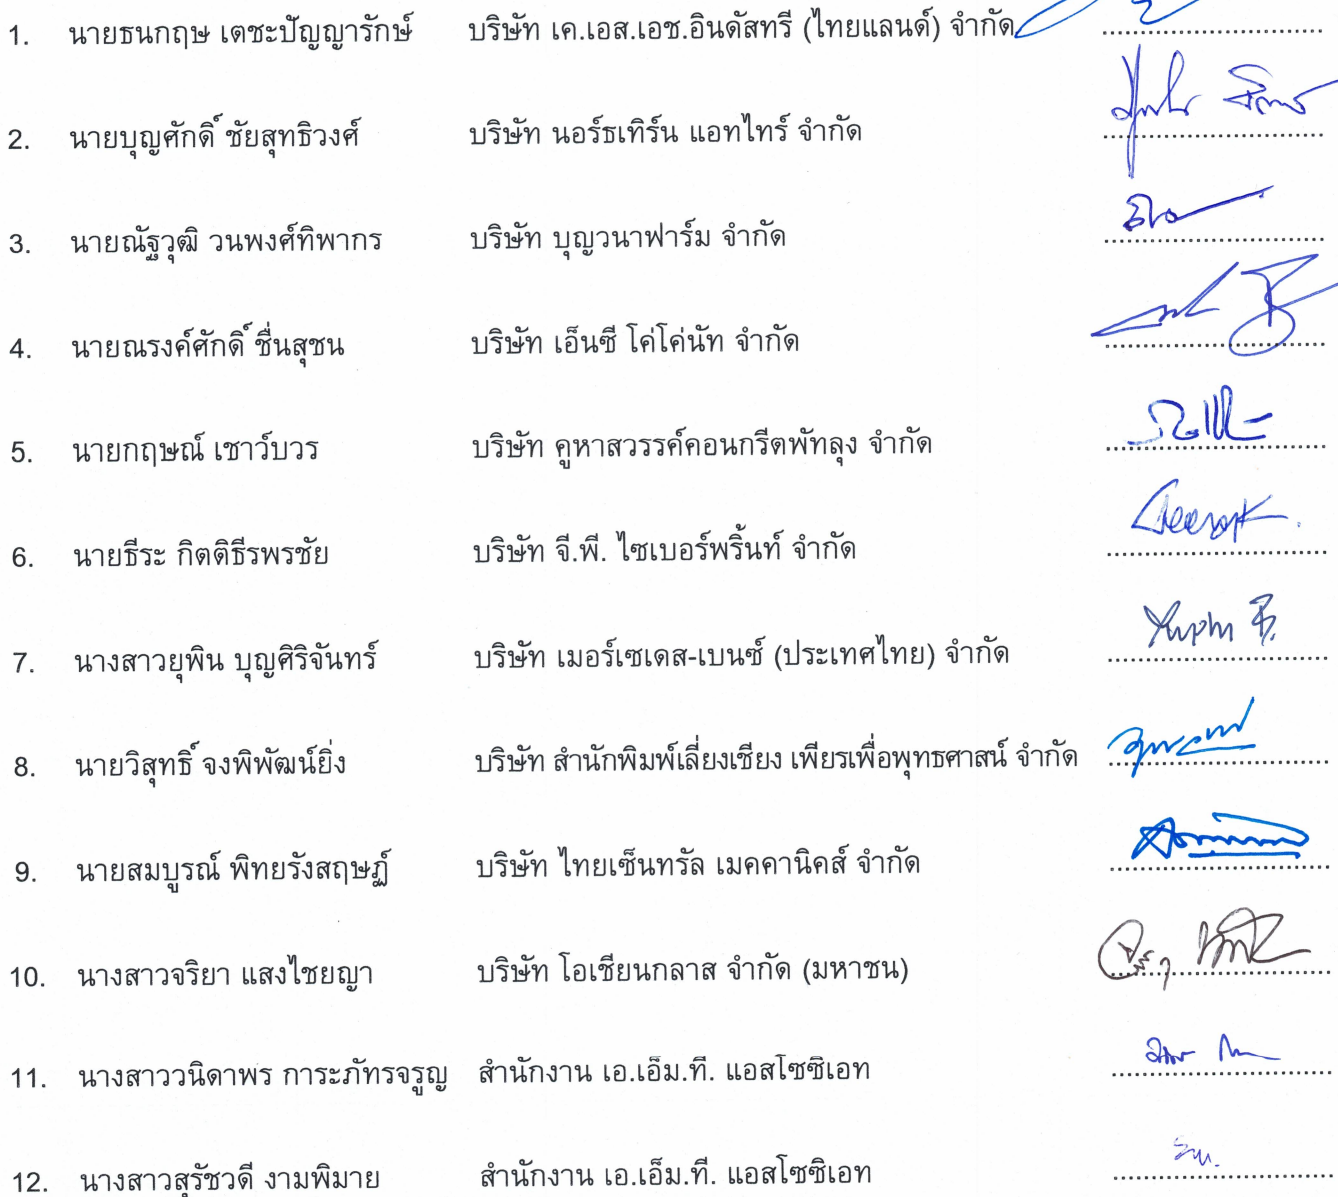 1. นายธนกฤษ เตชะปัญญารักษ์ บริษัท เค.เอส.เอช.อินดัสทรี (ไทยแลนด์) จำกัด
2. นายบุญศักดิ์ ชัยสุทธิวงศ์ บริษัท นอร์ธเทิร์น แอทไทร์ จำกัด
3. นายณัฐวุฒิ วนพงศ์ทิพากร บริษัท บุญวนาฟาร์ม จำกัด
4. นายณรงค์ศักดิ์ ชื่นสุชน บริษัท เอ็นซี โคโค่นัท จำกัด
5. นายกฤษณ์ เชาว์บวร บริษัท คูหาสวรรค์คอนกรีตพัทลุง จำกัด
6. นายธีระ กิตติธีรพรชัย บริษัท จี.พี. ไซเบอร์พริ้นท์ จำกัด
7. นางสาวยุพิน บุญศิริจันทร์ บริษัท เมอร์เซเดส-เบนซ์ (ประเทศไทย) จำกัด
8. นายวิสุทธิ์ จงพิพัฒน์ยิ่ง บริษัท สำนักพิมพ์เลี่ยงเชียง เพียรเพื่อพุทธศาสน์ จำกัด
9. นายสมบูรณ์ พิทยรังสฤษฏ์ บริษัท ไทยเซ็นทรัล เมคคานิคส์ จำกัด
10. นางสาวจริยา แสงไชยญา บริษัท โอเชียนกลาส จำกัด (มหาชน)
11. นางสาววนิดาพร การะภัทรจรูญ สำนักงาน เอ.เอ็ม.ที. แอสโซซิเอท
12. นางสาวสุรัชวดี งามพิมาย สำนักงาน เอ.เอ็ม.ที. แอสโซซิเอท